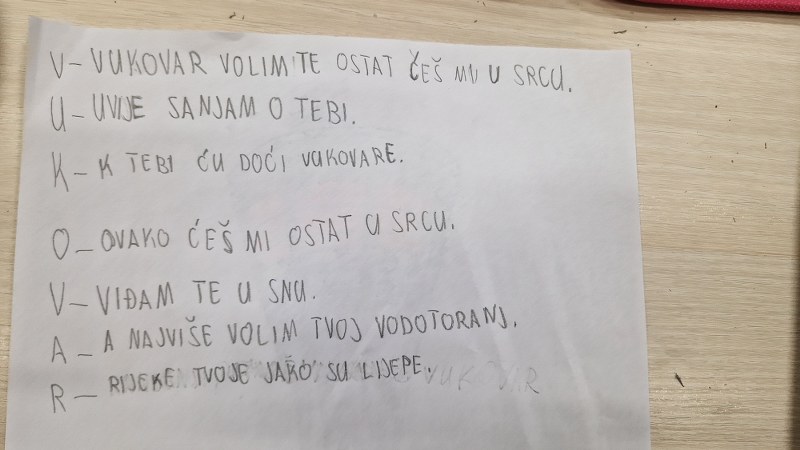 V- VUKOVAR VOLIM TE OSTAT ĆEŠ MI U SRCU.
U- UVIJE SANJAM O TEBI.
K- K TEBI ĆU DOĆI VUKOVARE.
O- OVAKO ĆEŠ MI OSTAT U SRCU.
V- VIĐAM TE U SNU.
A- A NAJVIŠE VOLIM TVOJ VODOTORANJ.
R- RIJEKE TVOJE JAKO SU LIJEPE. VUKOVAR